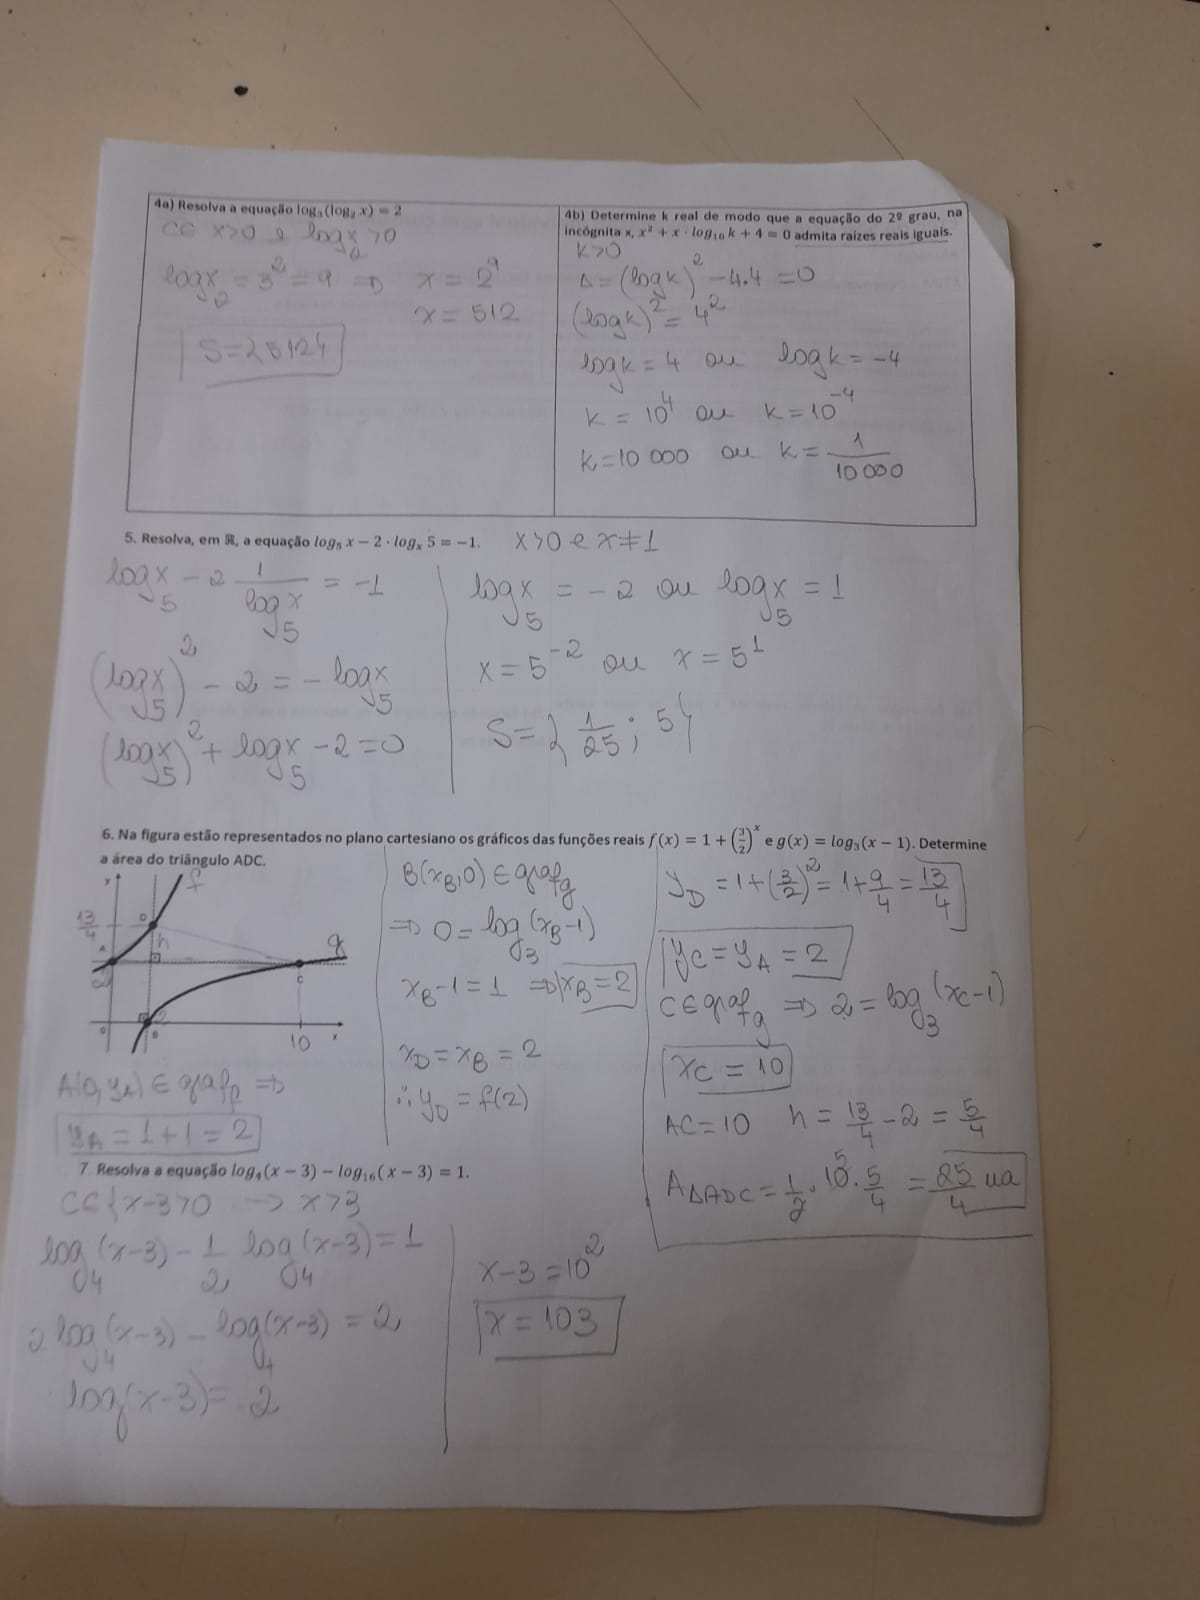 4a) Resolva a equação log₃(log₂ x) = 2
CE x>0 e log₂x>0
log₂x = 3² = 9 ⇒ x = 2⁹
x = 512
S={512}
4b) Determine k real de modo que a equação do 2º grau, na
incógnita x, x² + x · log₁₀ k + 4 = 0 admita raízes reais iguais.
k>0
Δ = (log k)² - 4.4 = 0
(log k)² = 4²
log k = 4 ou log k = -4
k = 10⁴ ou k = 10⁻⁴
k = 10 000 ou k = 1/10 000
5. Resolva, em ℝ, a equação log₅ x − 2 · logₓ 5 = −1. x>0 e x≠1
log₅x - 2 1/log₅x = -1
(log₅x)² - 2 = - log₅x
(log₅x)² + log₅x - 2 = 0
log₅x = -2 ou log₅x = 1
x = 5⁻² ou x = 5¹
S={1/25; 5}
6. Na figura estão representados no plano cartesiano os gráficos das funções reais f(x) = 1 + (3/2)ˣ e g(x) = log₃(x − 1). Determine
a área do triângulo ADC.
y f
13/4 D
h
A g
2 C
2
0 B 10 x
A(0, yA) ∈ graf f ⇒
yA = 1+1 = 2
B(xB,0) ∈ graf g
⇒ 0 = log₃(xB-1)
xB-1 = 1 ⇒ xB = 2
xD = xB = 2
∴ yD = f(2)
yD = 1+(3/2)² = 1+9/4 = 13/4
yC = yA = 2
C ∈ graf g ⇒ 2 = log₃(xC-1)
xC = 10
AC = 10 h = 13/4 - 2 = 5/4
A△ADC = 1/2 . 10 5 . 5/4 = 25/4 ua
7. Resolva a equação log₄(x − 3) − log₁₆(x − 3) = 1.
CE {x-3>0 → x>3
log₄(x-3) - 1/2 log₄(x-3) = 1
2 log₄(x-3) - log₄(x-3) = 2
log(x-3) = 2
x-3 = 10²
x = 103